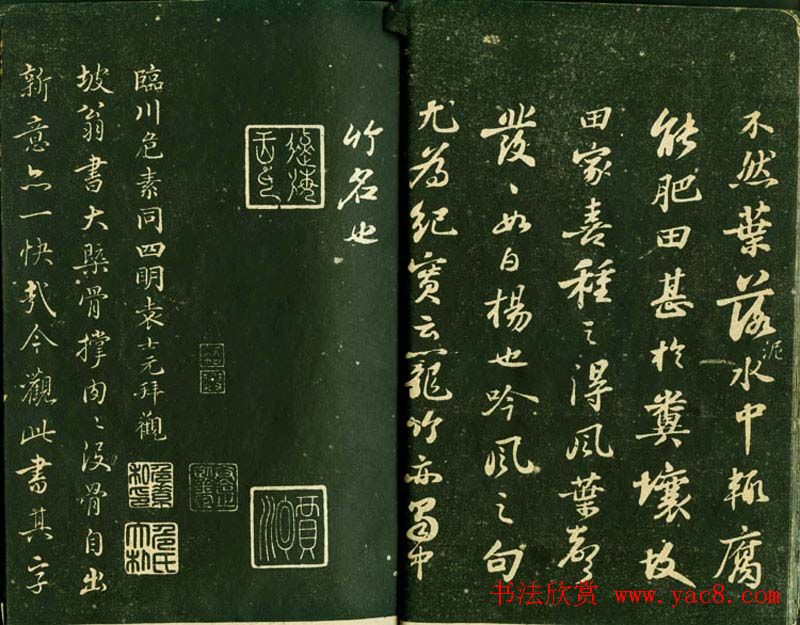 不然葉落泥水中輒腐
能肥田甚於糞壤故
田家喜種之得風葉聲
發〻如白楊也吟風之句
尤為紀實云龍竹亦蜀中
竹名也
賈
臨川危素同四明袁士元拜觀
坡翁書大槩骨撐肉〻沒骨自出
新意亦一快哉今觀此書其字
书法欣赏 www.yac8.com